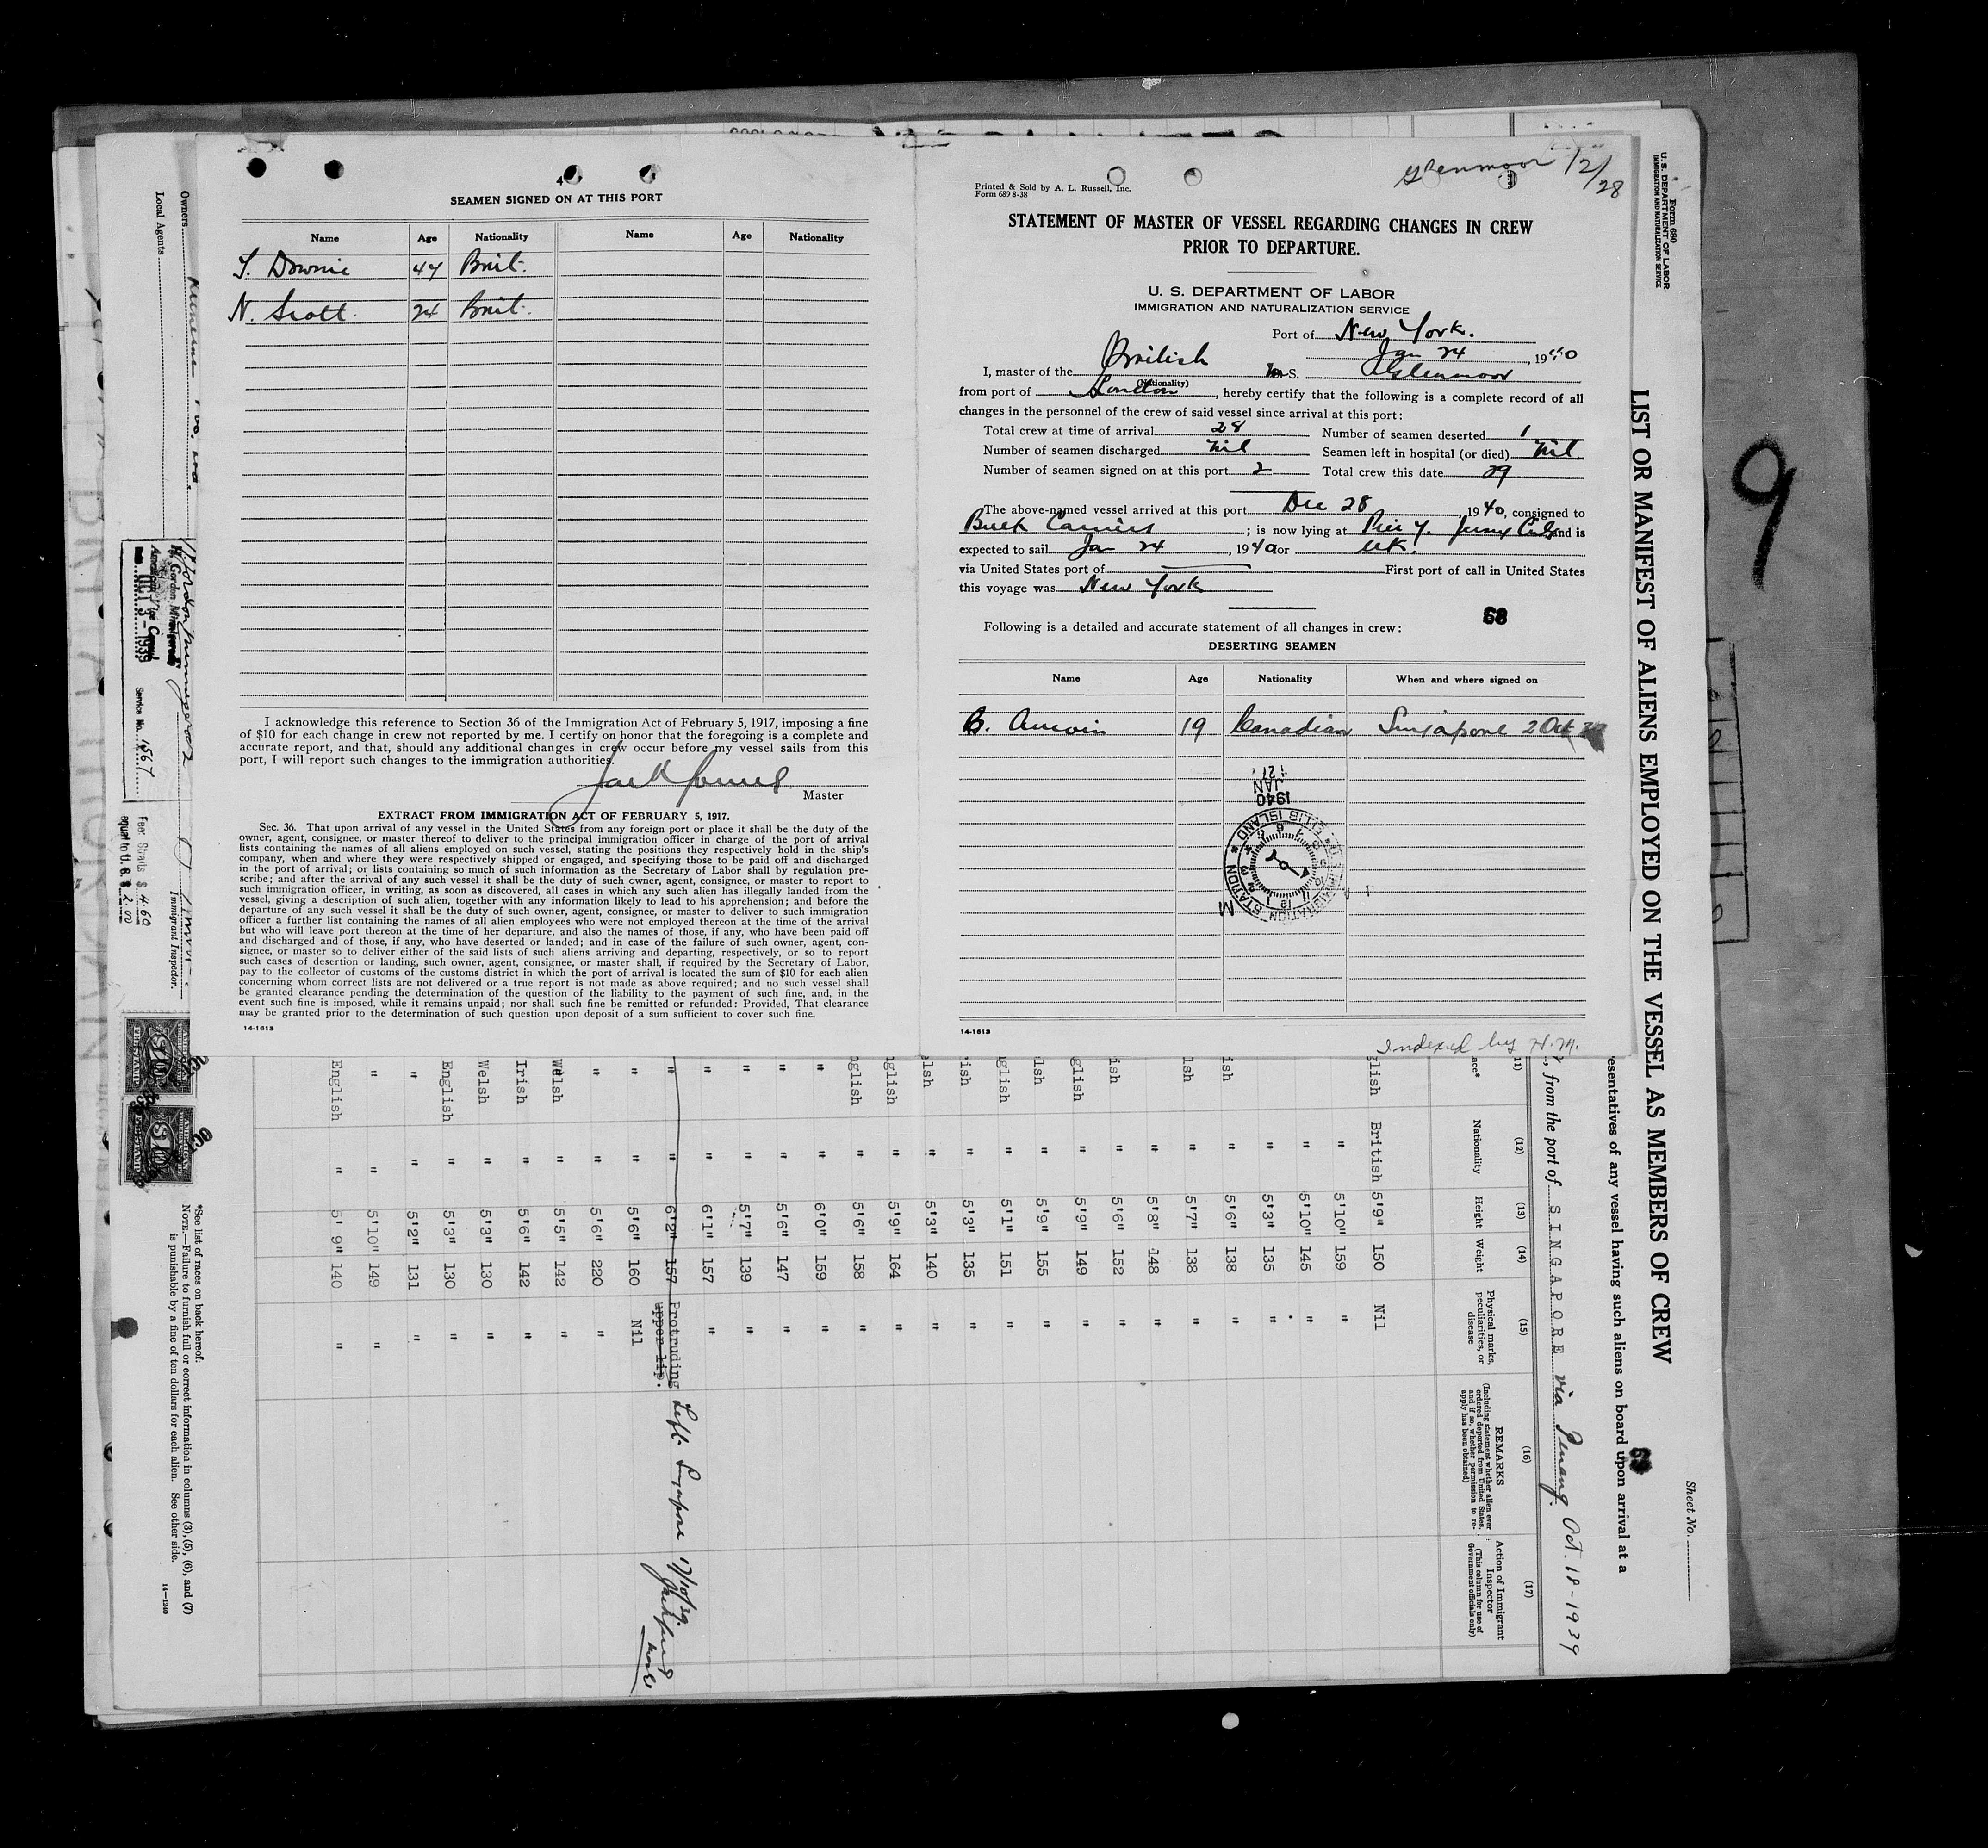 4
SEAMEN SIGNED ON AT THIS PORT
Name Age Nationality Name Age Nationality
Downie 47 Brit.
N. Scott. 24 Brit.
I acknowledge this reference to Section 36 of the Immigration Act of February 5, 1917, imposing a fine
of $10 for each change in crew not reported by me. I certify on honor that the foregoing is a complete and
accurate report, and that, should any additional changes in crew occur before my vessel sails from this
port, I will report such changes to the immigration authorities.
Master
EXTRACT FROM IMMIGRATION ACT OF FEBRUARY 5, 1917.
Sec. 36. That upon arrival of any vessel in the United States from any foreign port or place it shall be the duty of the
owner, agent, consignee, or master thereof to deliver to the principal immigration officer in charge of the port of arrival
lists containing the names of all aliens employed on such vessel, stating the positions they respectively hold in the ship's
company, when and where they were respectively shipped or engaged, and specifying those to be paid off and discharged
in the port of arrival; or lists containing so much of such information as the Secretary of Labor shall by regulation pre-
scribe; and after the arrival of any such vessel it shall be the duty of such owner, agent, consignee, or master to report to
such immigration officer, in writing, as soon as discovered, all cases in which any such alien has illegally landed from the
vessel, giving a description of such alien, together with any information likely to lead to his apprehension; and before the
departure of any such vessel it shall be the duty of such owner, agent, consignee, or master to deliver to such immigration
officer a further list containing the names of all alien employees who were not employed thereon at the time of the arrival
but who will leave port thereon at the time of her departure, and also the names of those, if any, who have been paid off
and discharged and of those, if any, who have deserted or landed; and in case of the failure of such owner, agent, con-
signee, or master so to deliver either of the said lists of such aliens arriving and departing, respectively, or so to report
such cases of desertion or landing, such owner, agent, consignee, or master shall, if required by the Secretary of Labor,
pay to the collector of customs of the customs district in which the port of arrival is located the sum of $10 for each alien
concerning whom correct lists are not delivered or a true report is not made as above required; and no such vessel shall
be granted clearance pending the determination of the question of the liability to the payment of such fine, and, in the
event such fine is imposed, while it remains unpaid; nor shall such fine be remitted or refunded: Provided, That clearance
may be granted prior to the determination of such question upon deposit of a sum sufficient to cover such fine.
14-1613
Glenmoor 12/28
Printed & Sold by A. L. Russell, Inc.
Form 689 8-38
STATEMENT OF MASTER OF VESSEL REGARDING CHANGES IN CREW
PRIOR TO DEPARTURE.
U. S. DEPARTMENT OF LABOR
IMMIGRATION AND NATURALIZATION SERVICE
Port of New York.
Jan 24, 1940
I, master of the British S. Glenmoor
(Nationality)
from port of London, hereby certify that the following is a complete record of all
changes in the personnel of the crew of said vessel since arrival at this port:
Total crew at time of arrival 28 Number of seamen deserted 1
Number of seamen discharged Nil Seamen left in hospital (or died) Nil
Number of seamen signed on at this port 2 Total crew this date 29
The above-named vessel arrived at this port Dec 28, 1940, consigned to
Bulk Carriers; is now lying at Pier 7. Jersey City and is
expected to sail Jan 24, 1940 or UK.
via United States port of First port of call in United States
this voyage was New York
68
Following is a detailed and accurate statement of all changes in crew:
DESERTING SEAMEN
Name Age Nationality When and where signed on
19 Canadian Singapore 2 Oct
1940
JAN
IMMIGRATION STATION ELLIS ISLAND
M
14-1613
Indexed by H.M.
Form 680
U. S. DEPARTMENT OF LABOR
IMMIGRATION AND NATURALIZATION SERVICE
LIST OR MANIFEST OF ALIENS EMPLOYED ON THE VESSEL AS MEMBERS OF CREW
Sheet No.
resentatives of any vessel having such aliens on board upon arrival at a
, from the port of SINGAPORE via Penang. Oct. 18-1939
(12) (13) (14) (15) (16) (17)
Nationality Height Weight Physical marks, peculiarities, or disease REMARKS (Including statement whether alien ever ordered deported from United States, and if so, whether permission to re-apply has been obtained) Action of Immigrant Inspector (This column for use of Government officials only)
glish British 5'9" 150 Nil
" 5'10" 159 "
" 5'10" 145 "
" 5'3" 135 "
ish " 5'6" 138 "
lsh " 5'7" 138 "
" 5'8" 148 "
ish " 5'6" 152 "
glish " 5'9" 149 "
lsh " 5'9" 155 "
glish " 5'1" 151 "
ish " 5'3" 135 "
lsh " 5'3" 140 "
glish " 5'9" 164 "
glish " 5'6" 158 "
" " 6'0" 159 "
" " 5'6" 147 "
" " 5'7" 139 "
" " 6'1" 157 "
" " 6'2" 157 Protruding upper lip. Left Singapore 17/10/39
" " 5'6" 160 Nil
" " 5'6" 220 "
Welsh " 5'5" 142 "
Irish " 5'6" 142 "
Welsh " 5'3" 130 "
English " 5'3" 130 "
" " 5'2" 131 "
" " 5'10" 149 "
English " 5'9" 140 "
Owners
Local Agents
Immigrant Inspector.
H. Gordon Minnigerode
American Vice Consul
OCT 3 - 1939
Service No. 1567
Fee: Straits $ 4.60
equal to U. S. $ 2.00
*See list of races on back hereof.
NOTE.—Failure to furnish full or correct information in columns (3), (5), (6), and (7)
is punishable by a fine of ten dollars for each alien. See other side.
14-1240
9